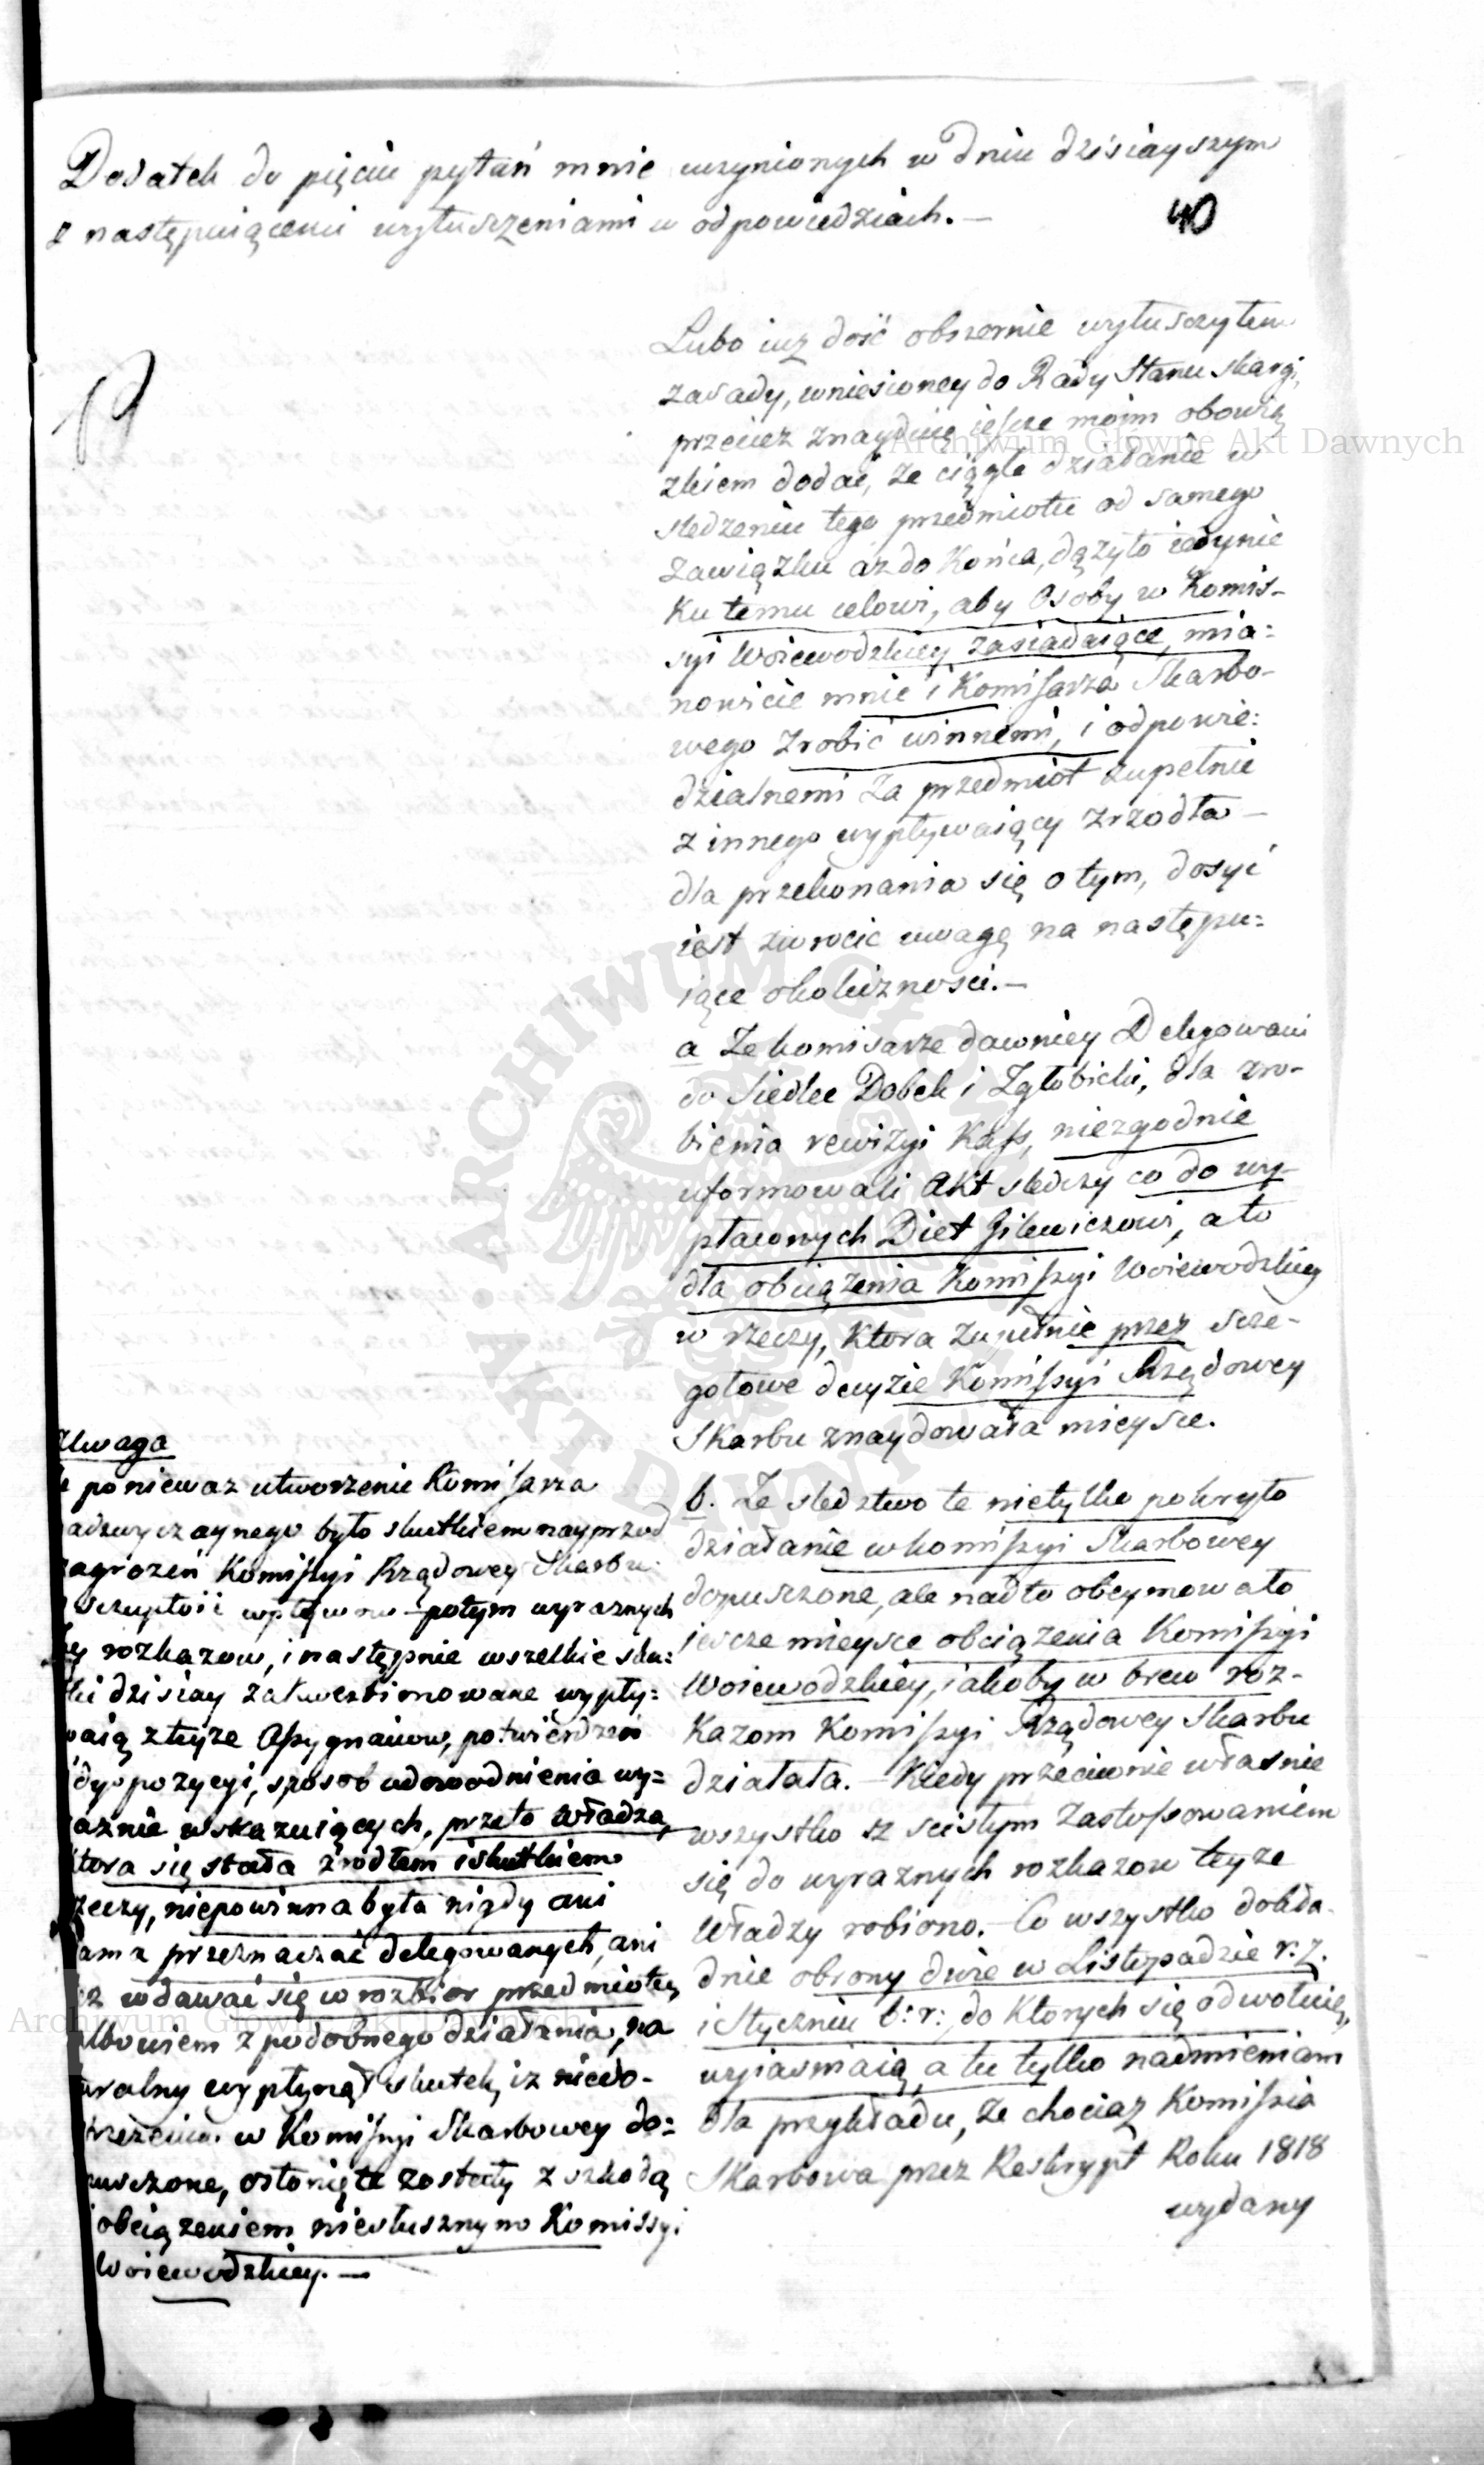 Dodatek do pięciu pytań mnie uczynionych w Dniu dzisiayszym
z następuiącemi wytłuszczeniami w odpowiedziach. —
40
Lubo iuz dość obszernie wytłusczyłem
zasady, wniesioney do Rady Stanu skargi,
przeciez znayduię iescze moim obowią
zkiem dodać, ze ciągłe działanie w
śledzeniu tego przedmiotu od samego
zawiązku az do Końca, dązyło iedynie
Ku temu celowi, aby Osoby w Komis-
syi Woiewodzkiey zasiadaiące, mia:
nowicie mnie i Komissarza Skarbo-
wego zrobić winnemi, i odpowie:
dzialnemi za przedmiot zupełnie
z innego wypływaiący zrzodła —
dla przekonania się o tym, dosyć
iest zwrocic uwagę na następu:
iące okoliznosci. —
a Ze komisarze dawniey Delegowani
do Siedlec Dobek i Zgłobicki, dla zro-
bienia rewizyi Kass, niezgodnie
uformowali Akt sledczy co do wy-
płaconych Diet Gilewiczowi, a to
dla obciązenia Komissyi Woiewodzkiey
w rzeczy, Ktora zupełnie przez scze-
gołowe decyzie Komissyi Rządowey
Skarbu znaydowała mieysce.
b. Ze sledztwo te nietylko pokryło
działanie w komissyi Skarbowey
dopusczone, ale nadto obeymowało
iescze mieysce obciązenia Komissyi
Woiewodzkiey, iakoby w brew roz-
Kazom Komissyi Rządowey Skarbu
działała. — Kiedy przeciwnie własnie
wszystko z scisłym Zastossowaniem
się do wyraznych rozkazow teyze
Władzy robiono. — Co wszystko dokła-
dnie obrony dwie w Listopadzie r: z.
i Styczniu b: r: do Ktorych się odwołuię,
wyiasniaią, a tu tylko nadmieniam
dla przykładu, ze chociaz Komissia
Skarbowa przez Reskrypt Roku 1818
wydany
Uwaga
poniewaz utworzenie Komissarza
adzwyczaynego było skutkiem nayprzod
zagrozeń Komissyi Rządowey Skarbu
sczupłość wpływow — potym wyraznych
rozkazow, i następnie wszelkie sku:
tki dzisiay zakwestionowane wypły:
waią z teyze Assygnaciow, potwierdzeń
dyspozycyi, sposob udowodnienia wy:
raznie wskazuiących, przeto Władza,
ktora się stała zrodłem i skutkiem
rzeczy, niepowinna była nigdy ani
sama przeznaczać delegowanych, ani
tez wdawać się w rozbior przedmiotu,
albowiem z podobnego działania, na
turalny wypłynął skutek, iz niedo-
rzeczenia w Komissyi Skarbowey do:
pusczone, osłonięte zostały z szkodą
i obciązeniem niesłusznym Komissyi
Woiewodzkiey. —
Archiwum Główne Akt Dawnych
Archiwum Główne Akt Dawnych
ARCHIWUM GŁÓWNE AKT DAWNYCH